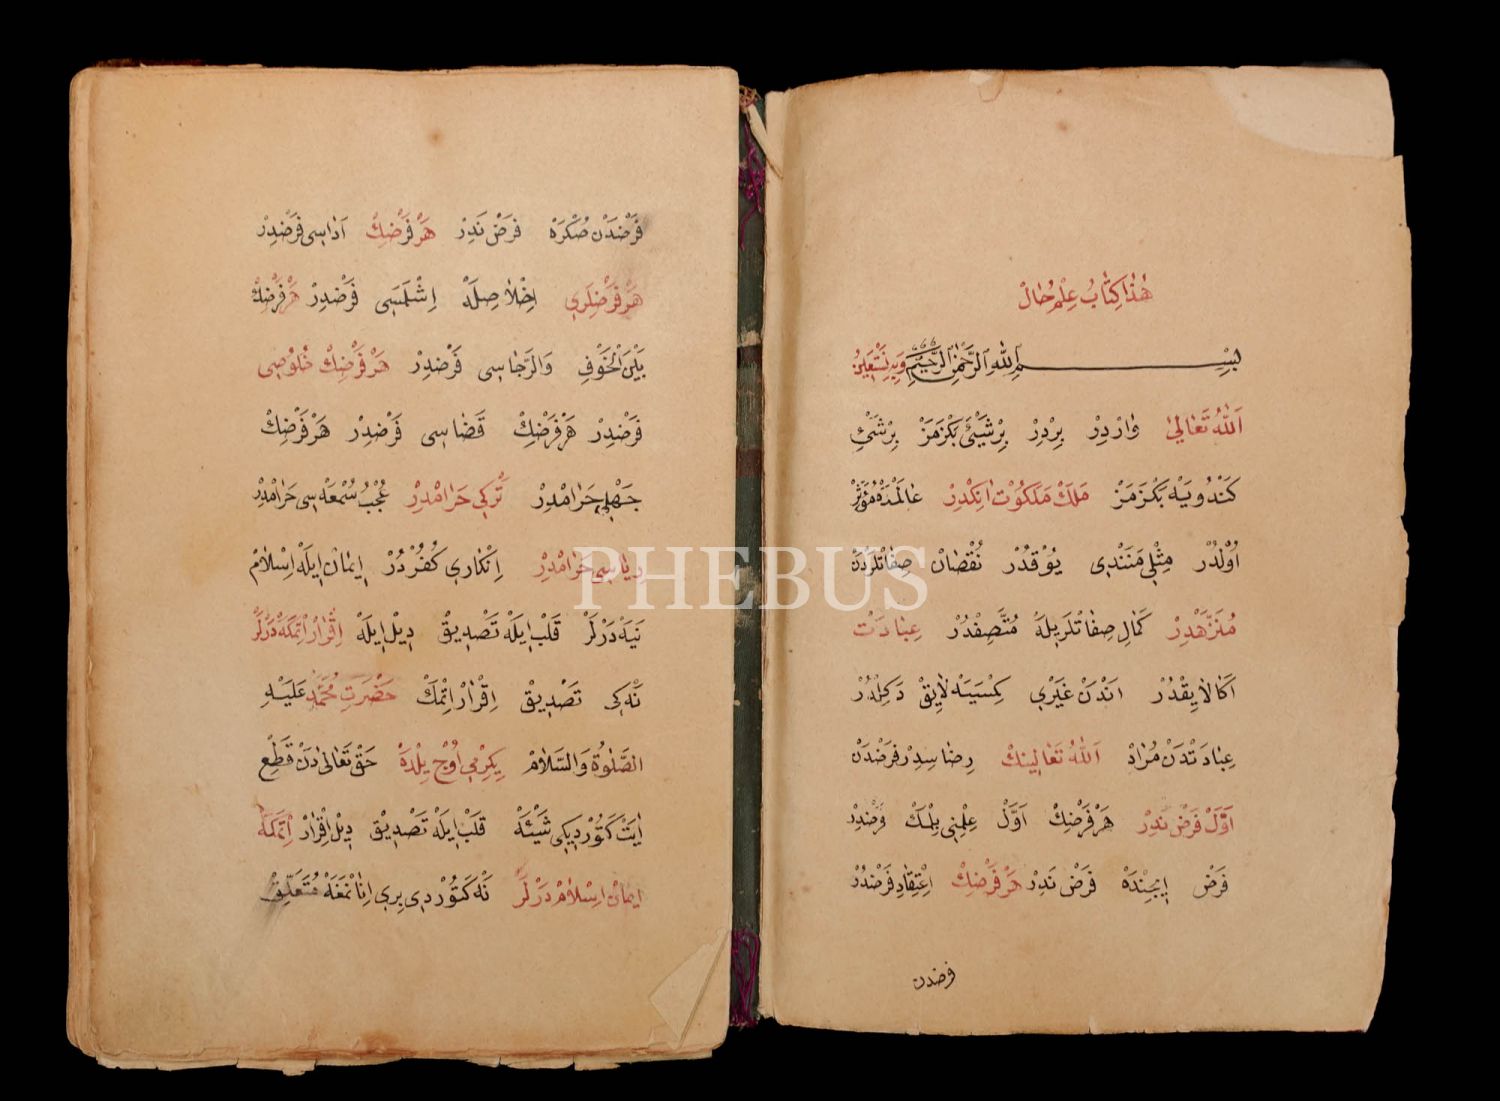 هٰذَا كِتَابُ عِلْمِ حَالْ
بِسْمِ اللّٰهِ الرَّحْمٰنِ الرَّحِيْمِ وَبِهِ نَسْتَعِينُ
اَللّٰهُ تَعَالٰى وَارْدِرْ بِرْدِرْ بِرْشَيْئَ بَكْزَمَزْ بِرْشَيْ
كَنْدُويَهْ بَكْزَمَزْ مَلَكْ مَلَكُوتْ انِكْدِرْ عَالَمْدَهْ مُؤَثِّرْ
اُوْلْدُرْ مِثْلِي مَنَنْدِي يُوْقْدُرْ نُقْصَانْ صِفَاتْلَرْدَنْ
مُنَزَّهْدِرْ كَمَالِ صِفَاتْلَرِيلَهْ مُتَّصِفْدُرْ عِبَادَتْ
اَكَا لَايِقْدُرْ انْدَنْ غَيْرِي كِمْسَيَهْ لَايِقْ دَكِلْدُرْ
عِبَادَتْدَنْ مُرَادْ اَللّٰهُ تَعَالَينِكْ رِضَاسِدِرْ فَرْضْدَنْ
اَوَّلْ فَرْضْ نَدِرْ هَرْ فَرْضِكْ اَوَّلْ عِلْمِنِي بِلْمَكْ فَرْضْدِرْ
فَرْضْ اِيچِنْدَهْ فَرْضْ نَدِرْ هَرْ فَرْضِكْ اِعْتِقَادِ فَرْضْدُرْ
فرضدن
فَرْضْدَنْ صُكْرَهْ فَرْضْ نَدِرْ هَرْ فَرْضِكْ اَدَاسِى فَرْضْدِرْ
هَرْ فَرْضْلَرِي اِخْلَاصِلَهْ اِشْلَمَسِي فَرْضْدِرْ هَرْ فَرْضِكْ
بَيْنَ الْخَوْفِ وَالرَّجَاسِي فَرْضْدِرْ هَرْ فَرْضِكْ خُلُوصِي
فَرْضْدِرْ هَرْ فَرْضِكْ قَضَاسِى فَرْضْدِرْ هَرْ فَرْضِكْ
جَهْلِي حَرَامْدِرْ تَرْكِي حَرَامْدِرْ عُجْبُ سُمْعَهْسِي حَرَامْدِرْ
رِيَاسِي حَرَامْدِرْ اِنْكَارِي كُفُرْدُرْ اِيمَانْ اِيلَهْ اِسْلَامْ
نَيَهْ دَرْلَرْ قَلْبْ اِيلَهْ تَصْدِيقْ دِيلْ اِيلَهْ اِقْرَارْ اِتْمَكَهْ دَرْلَرْ
نَهْ كِي تَصْدِيقْ اِقْرَارْ اِتْمَكْ حَضْرَتِ مُحَمَّدْ عَلَيْهِ
الصَّلٰوةُ وَالسَّلَامْ يِكِرْمِي اُوْچْ يِلْدَهْ حَقْ تَعَالٰى دَنْ قَطْعِ
اِيَتْ كَتُوْرْدِيكِي شَيْئَهْ قَلْبْ اِيلَهْ تَصْدِيقْ دِيلْ اِقْرَارْ اِتْمَكَهْ
اِيمَانْ اِسْلَامْ دَرْلَرْ نَهْ كَتُوْرْدِي بِرِي اِنَانْمَغَهْ مُتَعَلِّقْ
PHEBUS